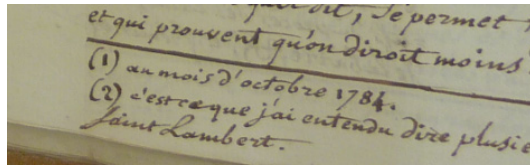 dit, se permet
et qui prouvent qu'on diroit moins
(1) au mois d'octobre 1784.
(2) c'est ce que j'ai entendu dire plusie
Saint Lambert.